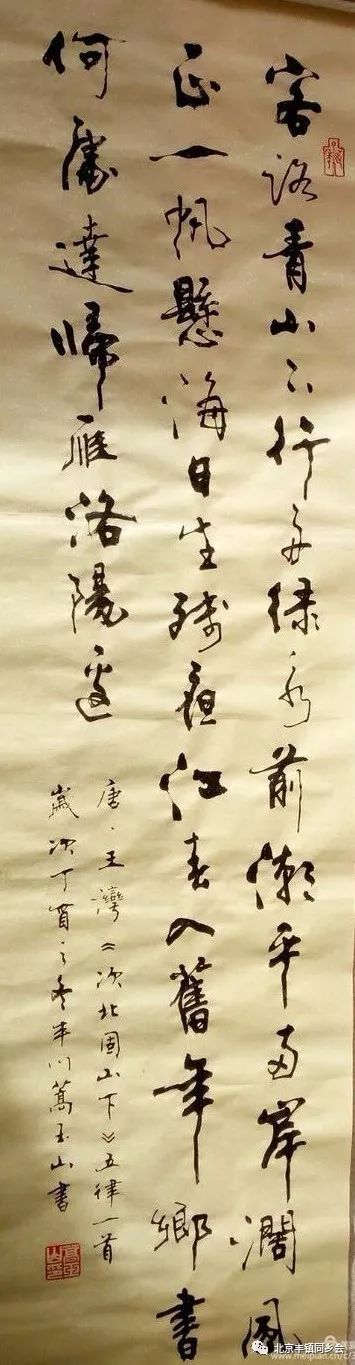 客路青山下行舟绿水前潮平两岸濶風
正一帆懸海日生残夜江春入舊年鄉書
何處達歸雁洛陽邊
唐、王灣《次北固山下》五律一首
歲次丁酉之冬丰川玉山書
北京丰镇同乡会
www.meipian.cn/c/3